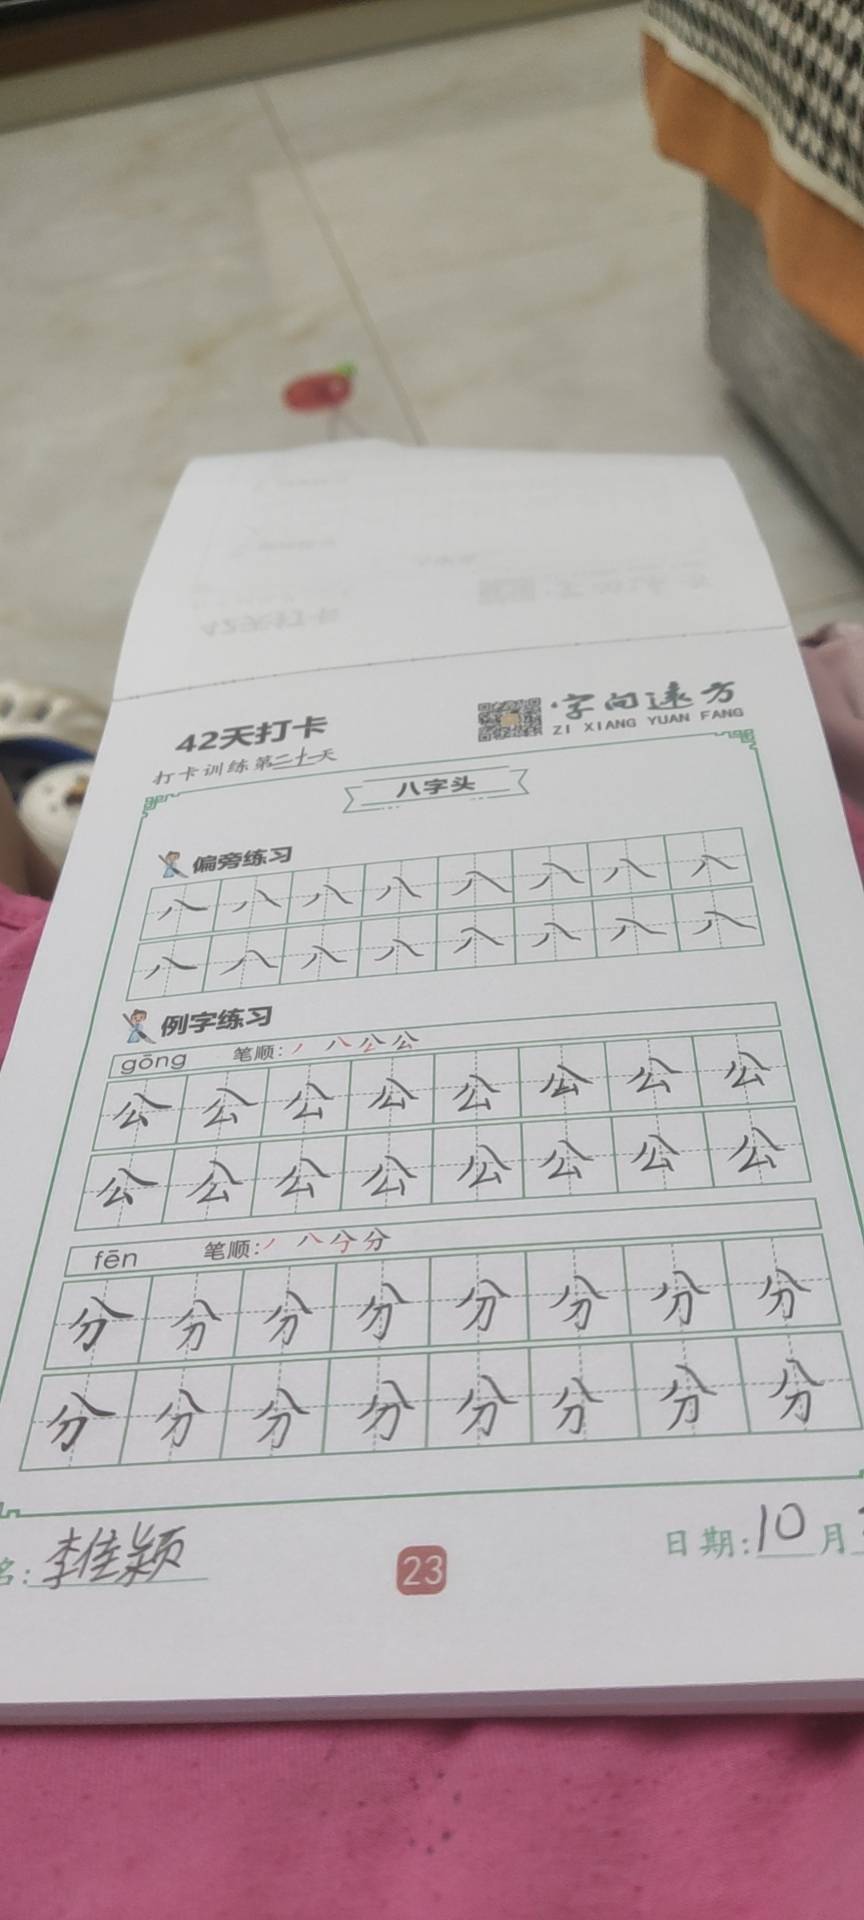 42天打卡
·字向远方
ZI XIANG YUAN FANG
打卡训练第二十一天
八字头
偏旁练习
八 八 八 八 八 八 八 八
八 八 八 八 八 八 八 八
例字练习
gōng 笔顺:丿 八 公 公
公 公 公 公 公 公 公 公
公 公 公 公 公 公 公 公
fēn 笔顺:丿 八 分 分
分 分 分 分 分 分 分 分
分 分 分 分 分 分 分 分
名:李佳颖
23
日期:10月